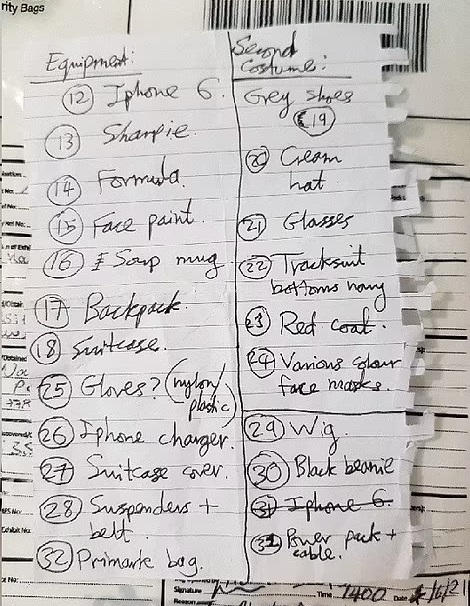 rity Bags
Equipment:
12 Iphone 6.
13 Sharpie.
14 Formula.
15 Face paint.
16 Soup mug
17 Backpack.
18 Suitcase.
25 Gloves? (nylon/
plastic)
26 Iphone charger.
27 Suitcase cover.
28 Suspenders +
belt.
32 Primark bag.
Second
Costume:
Grey Shoes
19
20 Cream
hat
21 Glasses
22 Tracksuit
bottoms navy
23 Red coat.
24 Various colour
face masks
29 Wig
30 Black beanie
31 Iphone 6.
Power pack +
cable.
Signature
Time 1400 Date